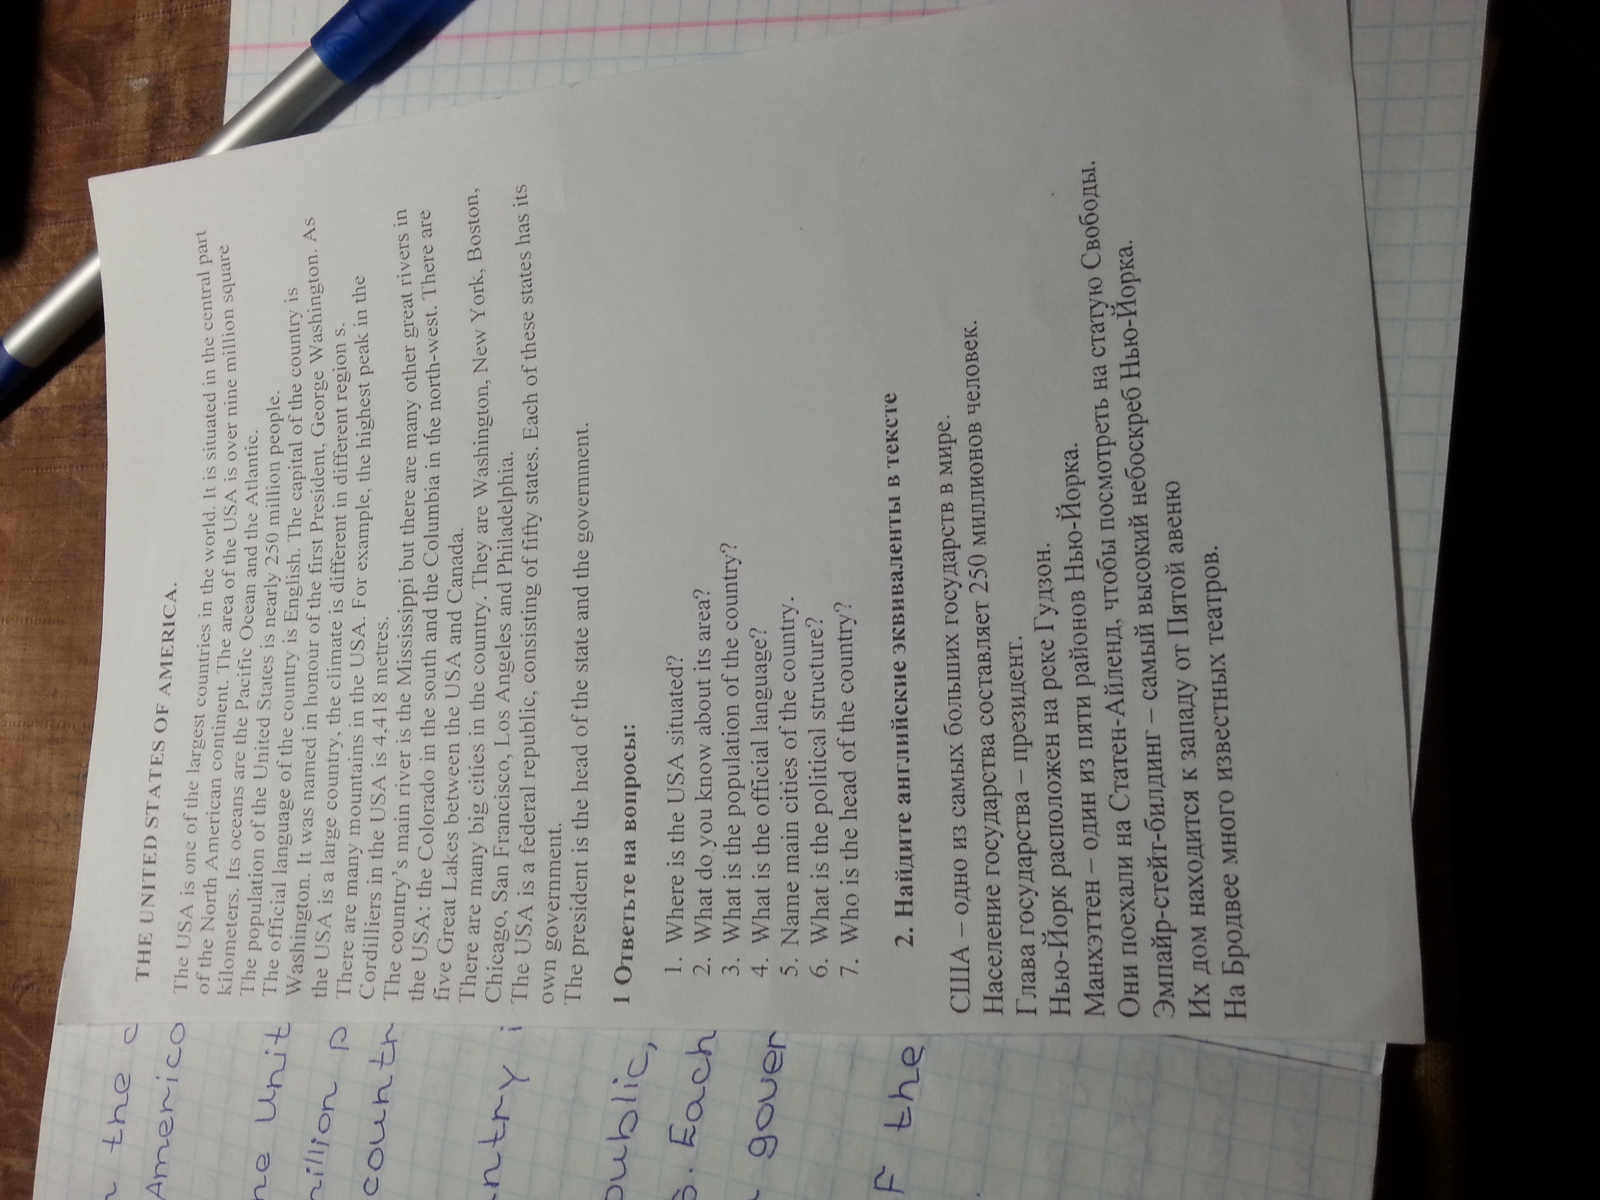 THE UNITED STATES OF AMERICA.
The USA is one of the largest countries in the world. It is situated in the central part
of the North American continent. The area of the USA is over nine million square
kilometers. Its oceans are the Pacific Ocean and the Atlantic.
The population of the United States is nearly 250 million people.
The official language of the country is English. The capital of the country is
Washington. It was named in honour of the first President, George Washington. As
the USA is a large country, the climate is different in different region s.
There are many mountains in the USA. For example, the highest peak in the
Cordilliers in the USA is 4,418 metres.
The country's main river is the Mississippi but there are many other great rivers in
the USA: the Colorado in the south and the Columbia in the north-west. There are
five Great Lakes between the USA and Canada.
There are many big cities in the country. They are Washington, New York, Boston,
Chicago, San Francisco, Los Angeles and Philadelphia.
The USA is a federal republic, consisting of fifty states. Each of these states has its
own government.
The president is the head of the state and the government.
1 Ответьте на вопросы:
1. Where is the USA situated?
2. What do you know about its area?
3. What is the population of the country?
4. What is the official language?
5. Name main cities of the country.
6. What is the political structure?
7. Who is the head of the country?
2. Найдите английские эквиваленты в тексте
США – одно из самых больших государств в мире.
Население государства составляет 250 миллионов человек.
Глава государства – президент.
Нью-Йорк расположен на реке Гудзон.
Манхэттен – один из пяти районов Нью-Йорка.
Они поехали на Статен-Айленд, чтобы посмотреть на статую Свободы.
Эмпайр-стейт-билдинг – самый высокий небоскреб Нью-Йорка.
Их дом находится к западу от Пятой авеню
На Бродвее много известных театров.
the
Americo
Unit
countr
Each
gover
the